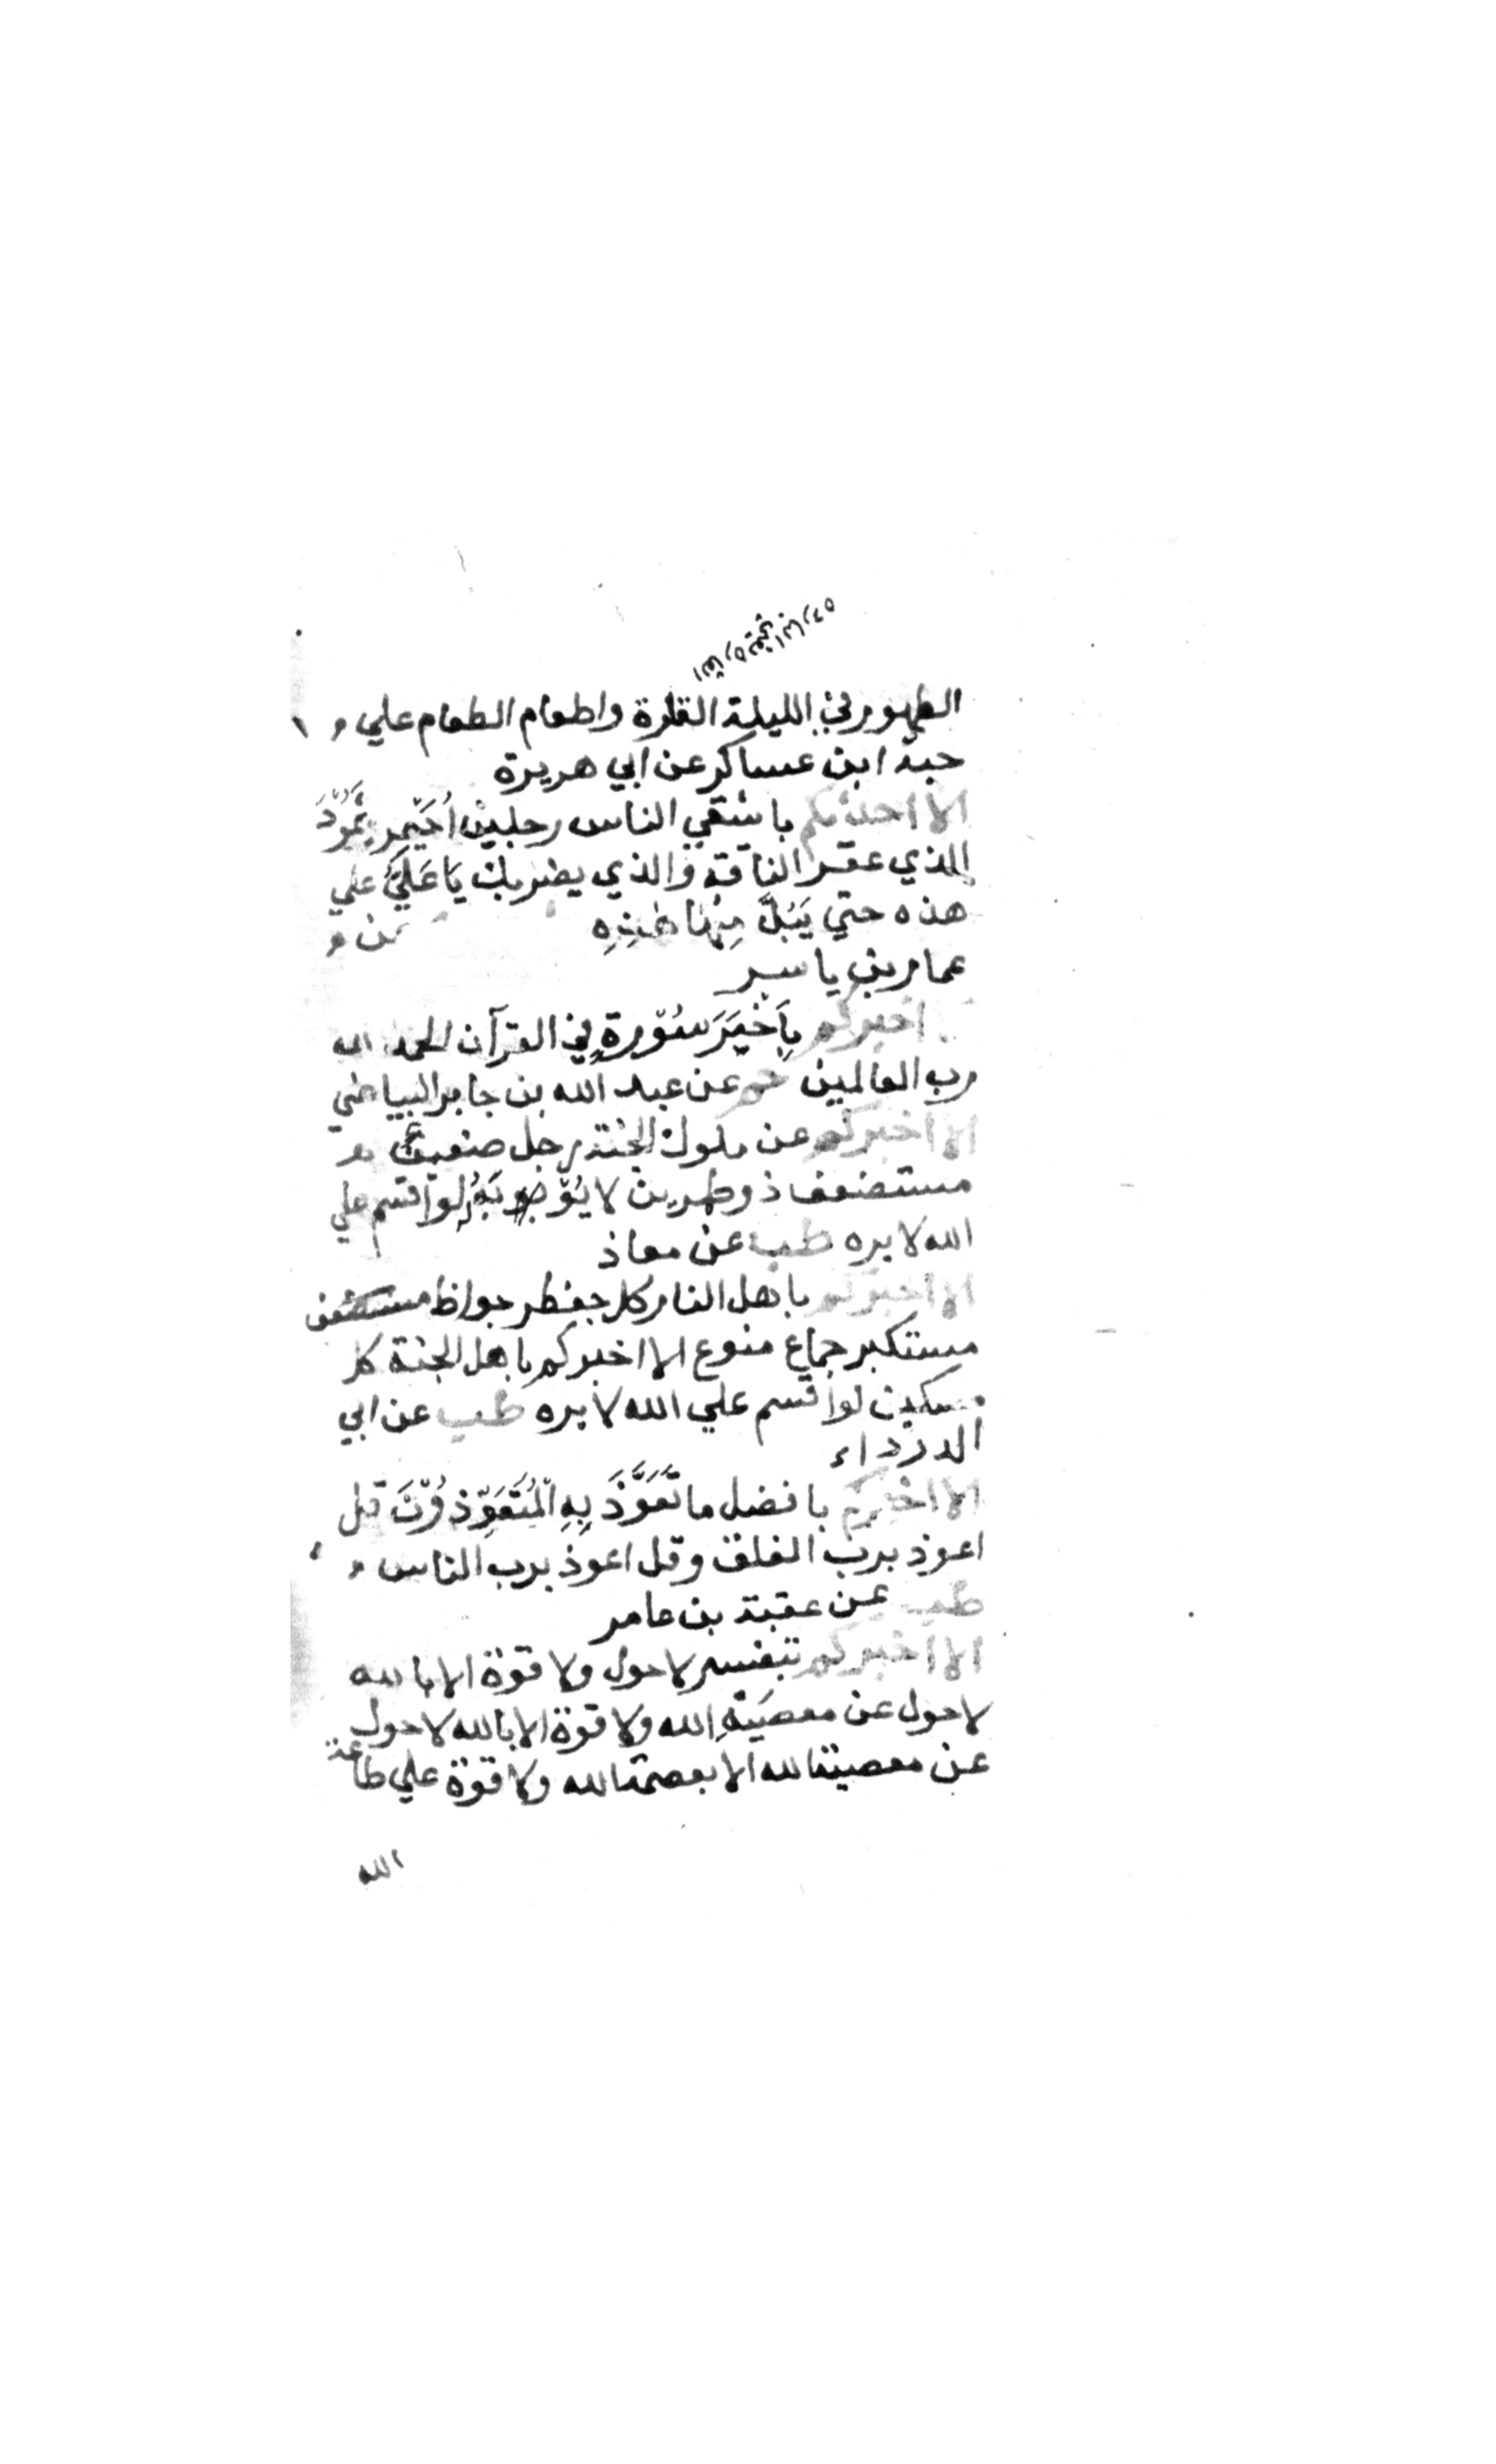 الطهور في الليلة القارة واطعام الطعام علي
حبه ابن عساكر عن ابي هريرة
الا احدثكم باشقي الناس رجلين اُحَيْمِر ثَمُوْدَ
الذي عقر الناقه والذي يضربك يَا عَلِيُّ علي
هذه حتي يَبُلَّ مِنْهَا هٰذِهِ عن
عمار بن ياسر
اخبركم بِاَخْيَرَ سُوْرةٍ في القرآن الحمد لله
رب العالمين حم عن عبد الله بن جابر البياضي
الا اخبركم عن ملوك الجنة رجل ضعيف
مستضعف ذو طمرين لا يُؤْبَهُ لو اقسم علي
الله لابره طب عن معاذ
الا اخبركم باهل النار كل جعظر جواظ
مستكبر جماع منوع الا اخبركم باهل الجنة كل
مسكين لو اقسم علي الله لابره طب عن ابي
الدرداء
الا اخبركم بافضل ما تَعَوَّذَ بِهِ الْمُتَعَوِّذُوْنَ قل
اعوذ برب الفلق وقل اعوذ برب الناس
طب عن عقبة بن عامر
الا اخبركم تبفسير لا حول ولا قوة الا بالله
لا حول عن معصيَةِ الله ولا قوة الا بالله لا حول
عن معصية الله الا بعصمة الله ولا قوة علي طاعة
الله